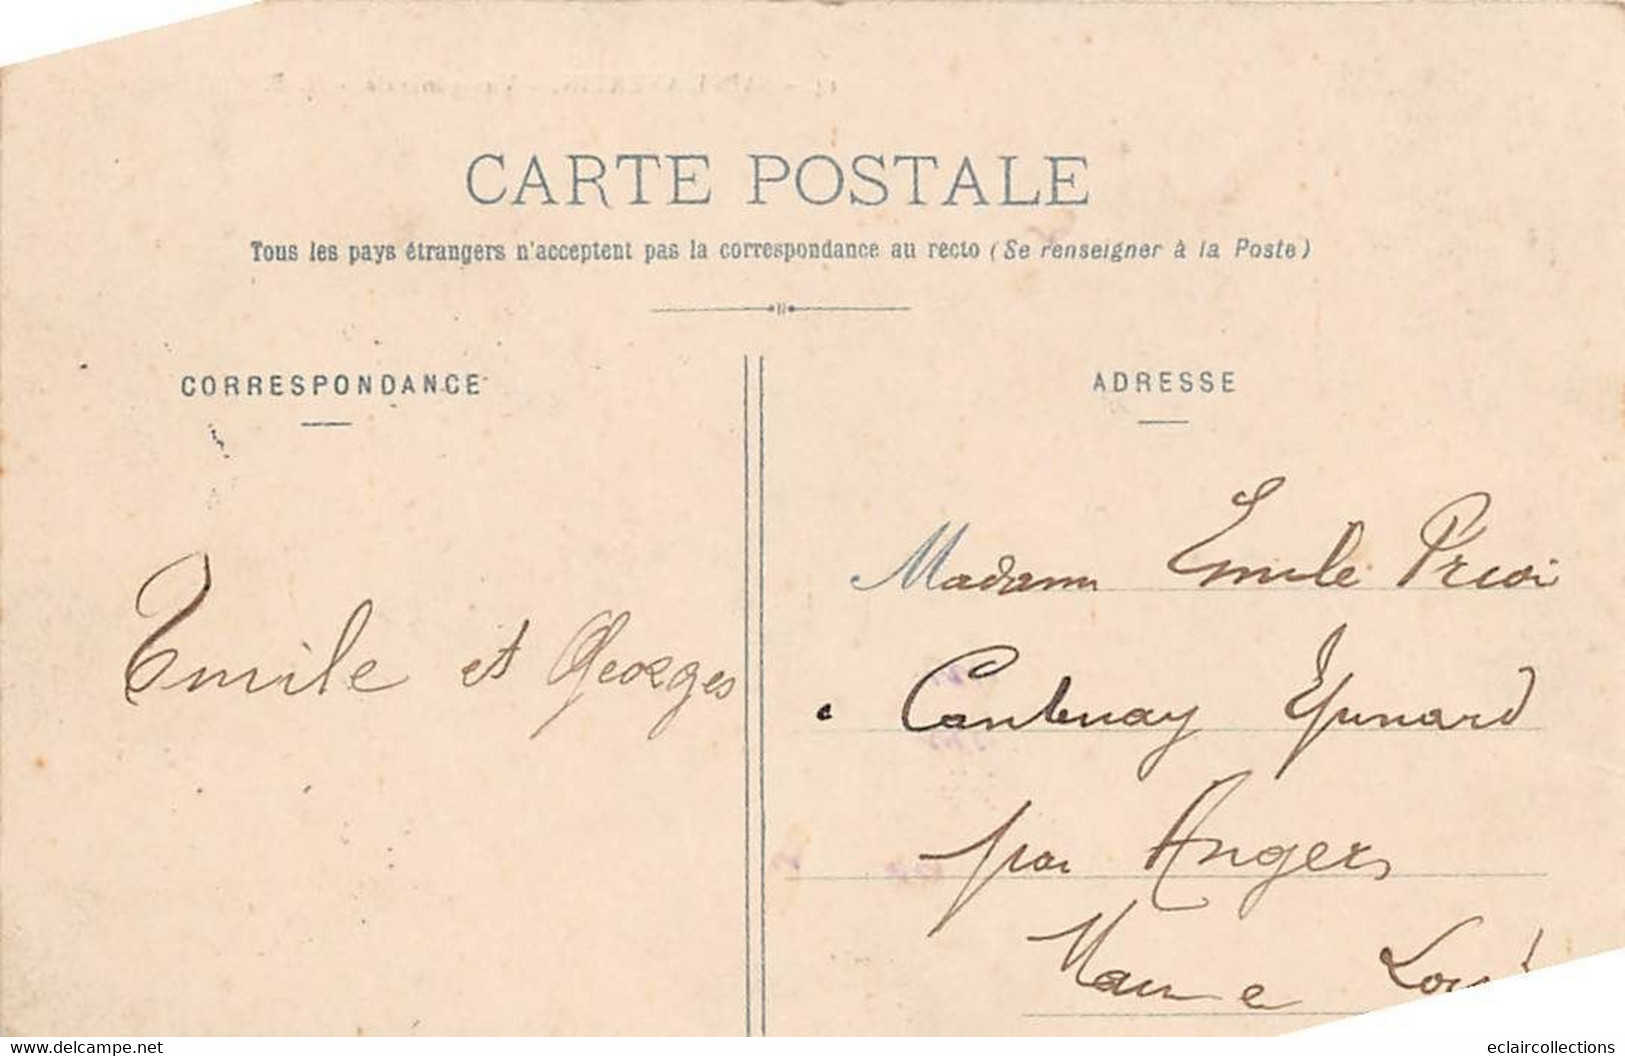 CARTE POSTALE
Tous les pays étrangers n'acceptent pas la correspondance au recto (Se renseigner à la Poste)
CORRESPONDANCE
ADRESSE
Emile et Georges
Madame Emile
Cantenay Epinard
par Angers
Maine Loire
www.delcampe.net
eclaircollections